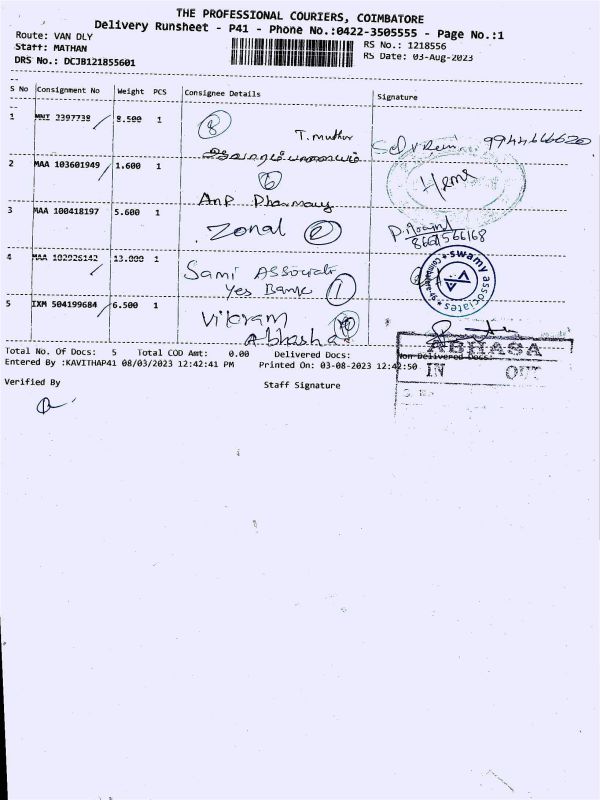 THE PROFESSIONAL COURIERS, COIMBATORE
Delivery Runsheet - P41 - Phone No.:0422-3505555 - Page No.:1
Route: VAN DLY
Staff: MATHAN
DRS No.: DCJB121855601
RS No.: 1218556
RS Date: 03-Aug-2023
S No Consignment No Weight PCS Consignee Details Signature
1 MNT 2397738 8.500 1 8 T. muthur
9944666620
2 MAA 103601949 1.600 1 6
ANP Pharmacy
3 MAA 100418197 5.600 1 Zonal 2
8667566168
4 MAA 102926142 13.000 1 Sami Associate
Yes Bank 1
swamy associates
5 IXM 504199684 6.500 1 Vikram
Abhasha
ABHASA
IN OUT
Total No. Of Docs: 5 Total COD Amt: 0.00 Delivered Docs: Non Delivered Docs:
Entered By :KAVITHAP41 08/03/2023 12:42:41 PM Printed On: 03-08-2023 12:42:50
Verified By Staff Signature